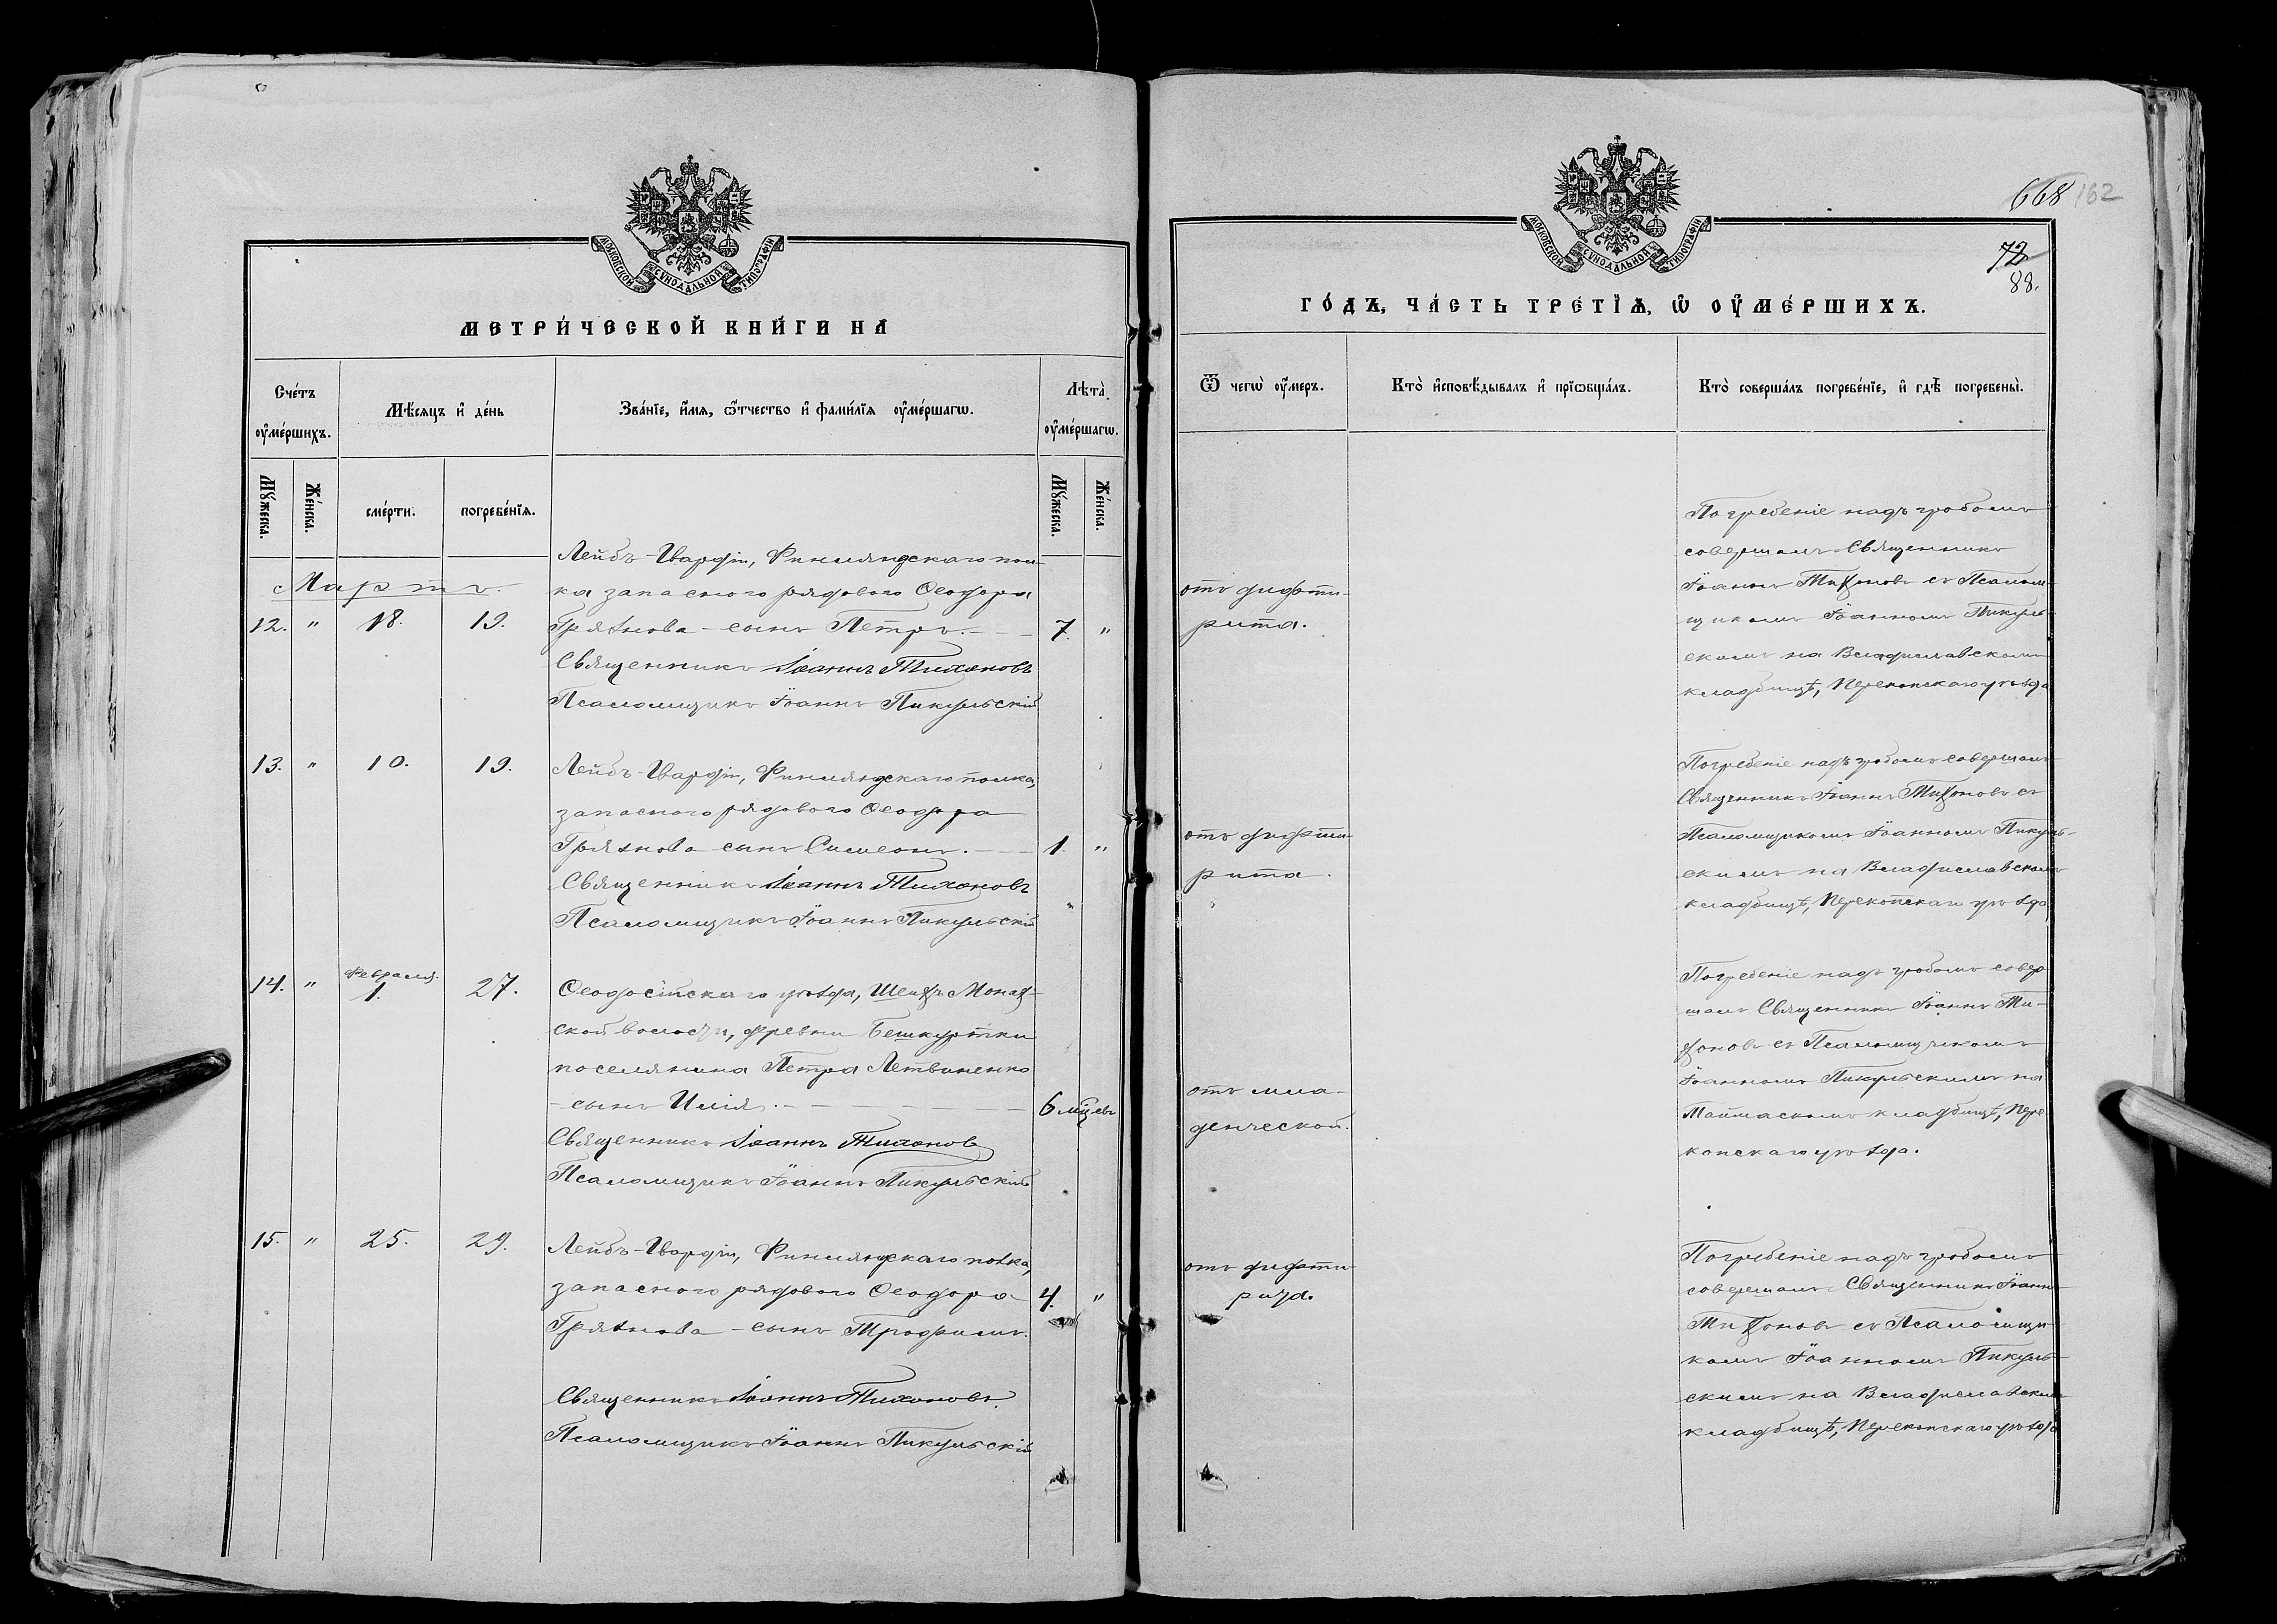 МОСКОВСКОЙ СѴНОДАЛЬНОЙ ТИПОГРАФІИ
МЕТРИ́ЧЕСКОЙ КНИ́ГИ НА̀
Сче́тъ ѹ҆ме́ршихъ.
Мѣ́сяцъ и҆ де́нь
Зва́нїе, и҆́мѧ, ѻ҆́тчество и҆ фами́лїѧ ѹ҆ме́ршагѡ.
Лѣта̀ ѹ҆ме́ршагѡ.
Мꙋ́жеска.
Же́нска.
сме́рти.
погребе́нїѧ.
Мꙋ́жеска.
Же́нска.
Мартъ.
12. " 18. 19.
Лейбъ-Гвардіи, Финляндскаго пол-
ка запасного рядового Ѳеодора
Грязнова - сынъ Петръ. 7. "
Священникъ Іоаннъ Тихоновъ
Псаломщикъ Іоаннъ Пикульскій
13. " 10. 19.
Лейбъ-Гвардіи, Финляндскаго полка,
запасного рядового Ѳеодора
Грязнова сынъ Симеонъ. 1. "
Священникъ Іоаннъ Тихоновъ
Псаломщикъ Іоаннъ Пикульскій
14. " Февраля. 1. 27.
Ѳеодосійскаго уѣзда, Шейхъ Монах-
ской волости, деревни Бешкуртки
поселянина Петра Летвиненко
- сынъ Илія. 6 мцевъ
Священникъ Іоаннъ Тихоновъ
Псаломщикъ Іоаннъ Пикульскій
15. " 25. 29.
Лейбъ-Гвардіи, Финляндскаго полка,
запасного рядового Ѳеодора 4. "
Грязнова - сынъ Трофимъ.
Священникъ Іоаннъ Тихоновъ.
Псаломщикъ Іоаннъ Пикульскій
668 162
72
88.
МОСКОВСКОЙ СѴНОДАЛЬНОЙ ТИПОГРАФІИ
ГО́ДЪ, ЧА́СТЬ ТРЕ́ТЇѦ, Ѡ҆ ОУ҆МЕ́РШИХЪ.
Ѿ чегѡ̀ ѹ҆́меръ.
Кто̀ и҆сповѣ́дывалъ и҆ прїѡбща́лъ.
Кто̀ соверша́лъ погребе́нїе, и҆ гдѣ̀ погребены̀.
отъ дифти-
рита.
Погребеніе надъ гробомъ
совершалъ Священникъ
Іоаннъ Тихоновъ съ Псалом-
щикомъ Іоанномъ Пикуль-
скимъ на Владиславскомъ
кладбищѣ, Перекопскаго уѣзда
отъ дифти-
рита.
Погребеніе надъ гробомъ совершалъ
Священникъ Іоаннъ Тихоновъ съ
Псаломщикомъ Іоанномъ Пикуль-
скимъ на Владиславскомъ
кладбищѣ, Перекопскаго уѣзда
отъ мла-
денческой.
Погребеніе надъ гробомъ совер
шалъ Священникъ Іоаннъ Ти-
хоновъ съ Псаломщикомъ
Іоанномъ Пикульскимъ на
кладбищѣ, Пере-
копскаго уѣзда.
отъ дифти-
рита.
Погребеніе надъ гробомъ
совершалъ Священникъ Іоаннъ
Тихоновъ съ Псаломщи-
комъ Іоанномъ Пикуль-
скимъ на Владиславскомъ
кладбищѣ, Перекопскаго уѣзда